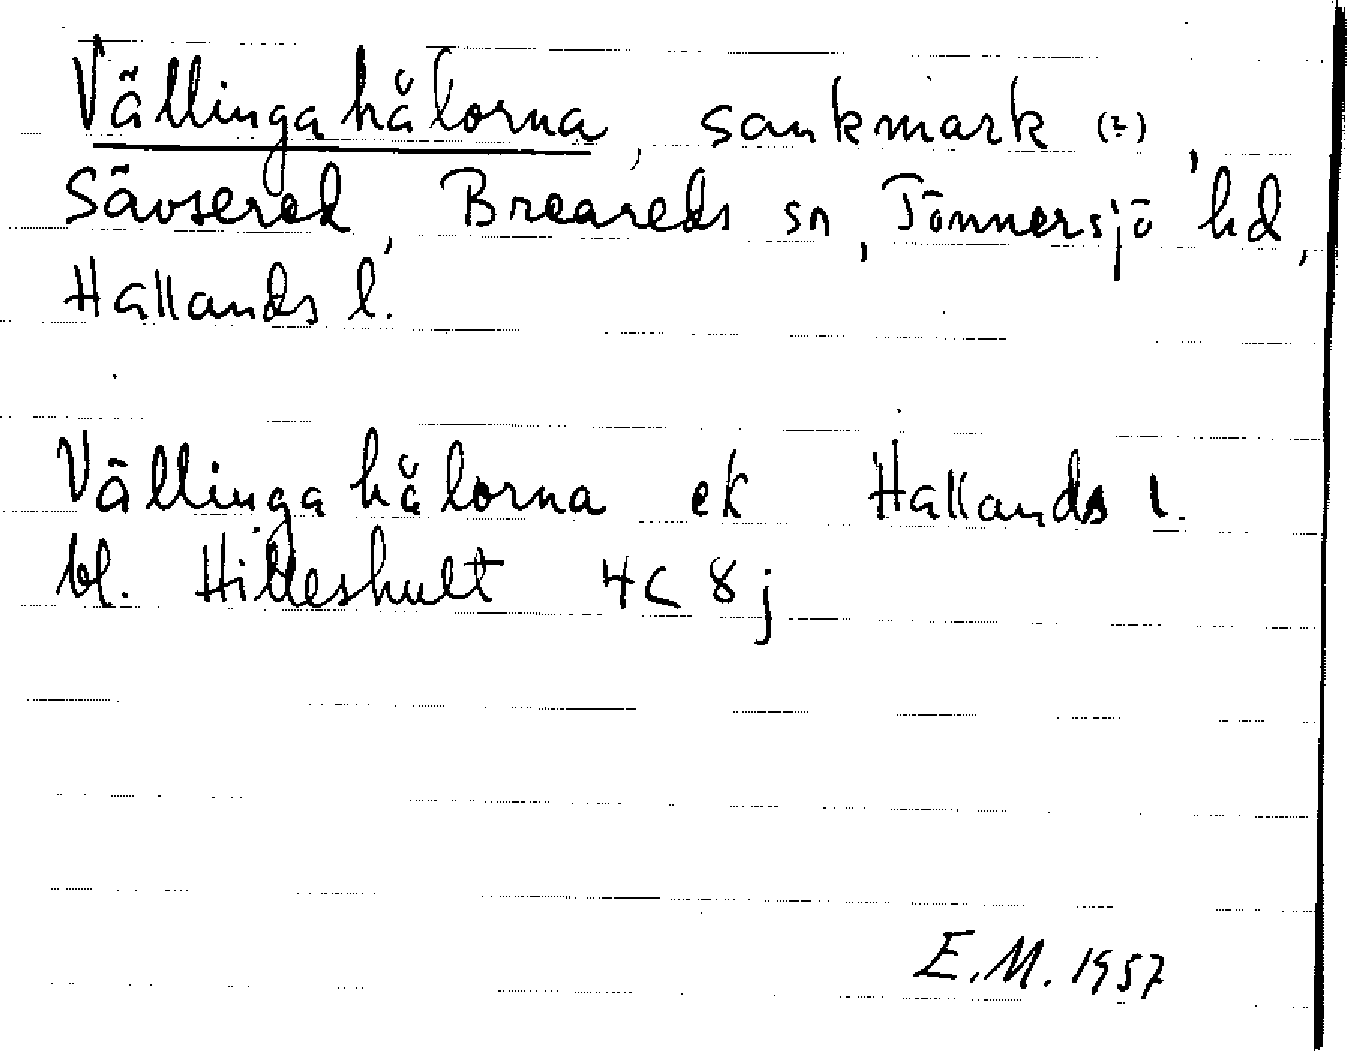 Vällingahålorna, sankmark (?),
Sävsered, Breareds sn, Tönnersjö hd,
Hallands l.
Vällingahålorna ek Hallands l.
bl. Hilleshult 4C 8j
E.M. 1957